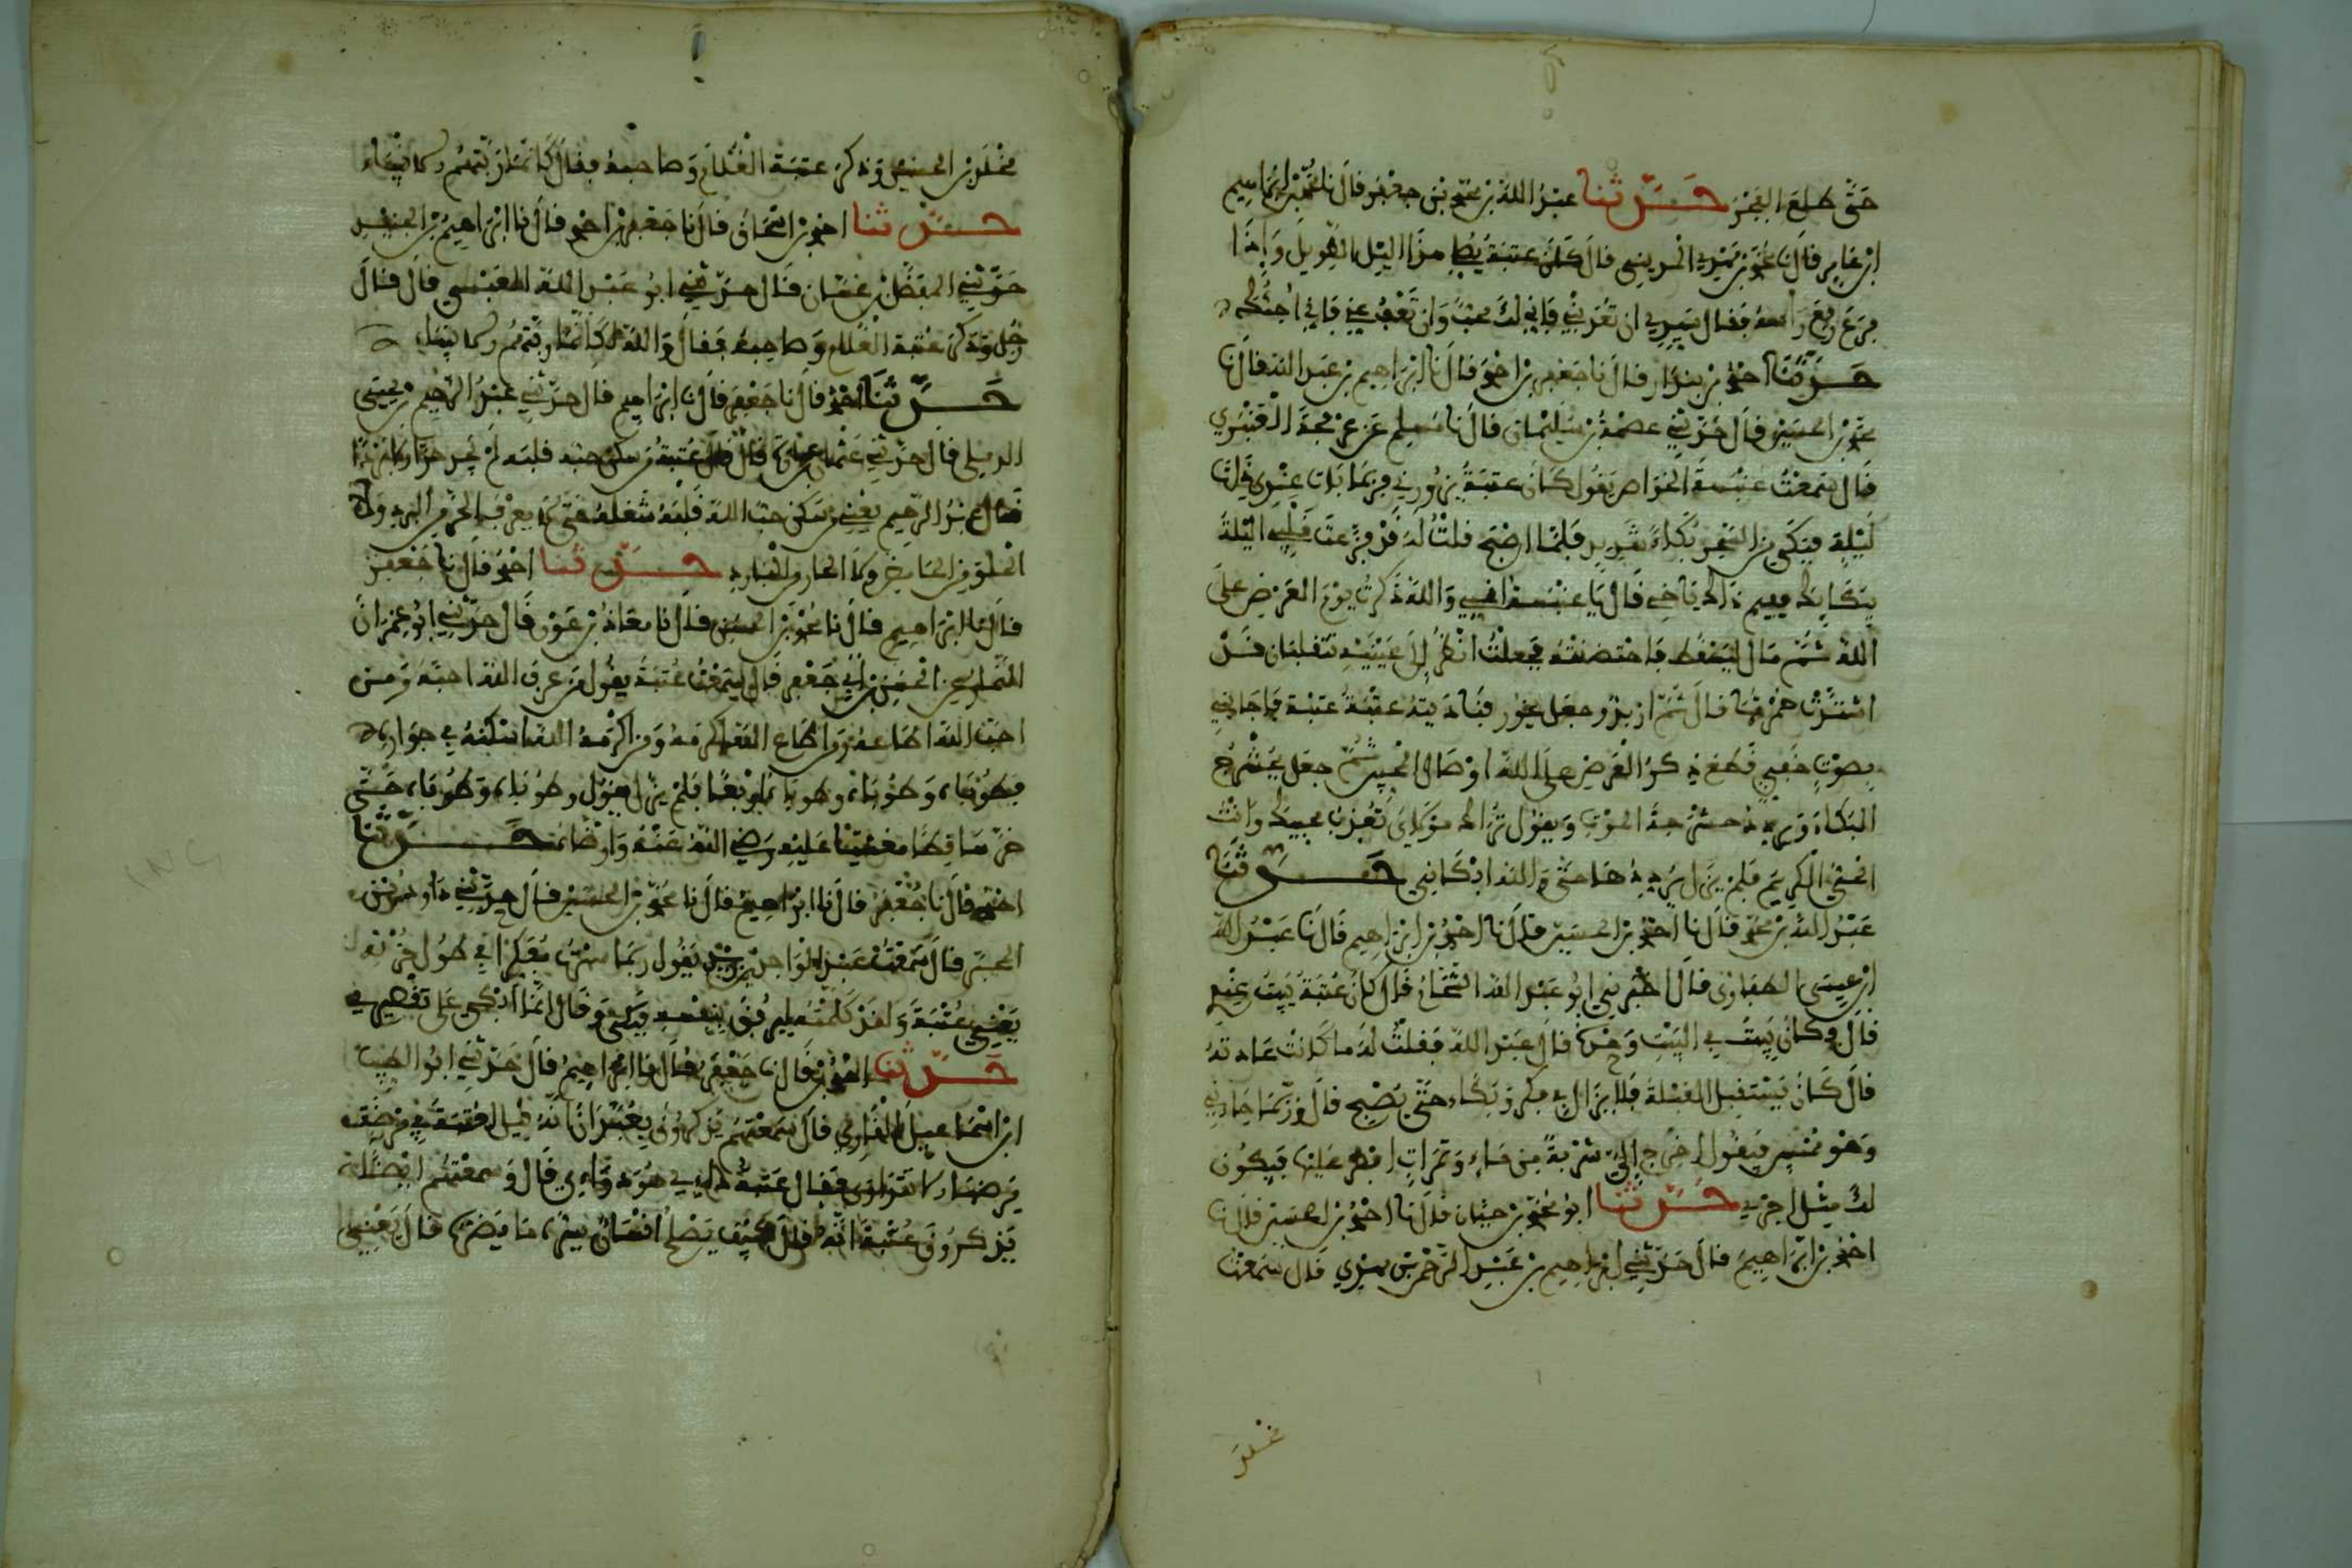 حتى طلع الفجر حدثنا عبد الله بن محمد بن جعفر قال نا محمد بن ابراهيم
ابن عامر قال نا قال كان عتبة هذا الليل الطويل واذا
فرغ رفع راسه فقال سيدي ان تعذبني فاني لك محب وان تعف عني فاني احبك
حدثنا احمد بن بندار قال نا جعفر بن احمد قال نا ابراهيم بن عبد الله قال نا
محمد بن الحسين قال حدثني عصمة بن سليمان قال نا مسلم بن عرفجة العنبري
قال سمعت عنبسة الخواص يقول كان عتبة يزورني فربما بات عندي قال فبات
ليلة فبكى من السحر بكاء شديدا فلما اصبح قلت له قد فزعت قلبي الليلة
ببكائك ففيم ذاك يا اخي قال يا عنبسة اني والله ذكرت يوم العرض على
الله ثم مال ليسقط فاحتضنته فجعلت انظر الى عينيه تتقلبان قد
اشتدت حمرتهما قال ثم ازبد وجعل يخور فناديته عتبة عتبة فاجابني
بصوت خفي قطع ذكر العرض على الله اوصال المحبين ثم جعل يحشرج
البكاء ويردد حشرجة الموت ويقول تراك مولاي تعذب محبيك وانت
الحي الكريم فلم يزل يرددها حتى والله ابكاني حدثنا
عبد الله بن محمد قال نا احمد بن الحسين قال نا احمد بن ابراهيم قال نا عبد الله
ابن عيسى الطفاوي قال اخبرني ابو عبد الله الشحام قال كان عتبة يبيت عندي
قال وكان يبيت في البيت وحده قال عبد الله فقلت له ما كانت عادته
قال كان يستقبل القبلة فلا يزال في فكر وبكاء حتى يصبح قال وربما جاءني
وهو ممسي فيقول اخرج الي شربة من ماء وتمرات افطر عليها فيكون
لك مثل اجري حدثنا ابو محمد بن حيان قال نا احمد بن الحسين قال نا
احمد بن ابراهيم قال حدثني ابراهيم بن عبد الرحمن بن مهدي قال سمعت
مخلد
مخلد بن الحسين وذكر عتبة الغلام وصاحبه فقال كانما ربتهم الانبياء
حدثنا احمد بن اسحاق قال نا جعفر بن احمد قال نا ابراهيم بن الجنيد
حدثني المفضل بن غسان قال حدثني ابو عبد الله قال قال
رجل وذكر عتبة الغلام وصاحبه فقال والله لكانما ربتهم الانبياء
حدثنا احمد قال نا جعفر قال نا ابراهيم قال حدثني عبد الرحيم بن يحيى
الديبلي قال حدثني عثمان بن عمارة قال قال عتبة من سكن حبه قلبه لم يجد حرا ولا بردا
قال عبد الرحيم يعني من سكن حب الله قلبه شغله حتى لا يعرف الحر من البرد ولا
الحلو من الحامض ولا الحار من البارد حدثنا احمد قال نا جعفر
قال نا ابراهيم قال نا محمد بن الحسين قال نا معاذ بن عون قال حدثني ابو عمران
التمار عن الحسن بن ابي جعفر قال سمعت عتبة يقول من عرف الله احبه ومن
احب الله اطاعه ومن اطاع الله اكرمه ومن اكرمه الله اسكنه في جواره
فطوباه وطوباه وطوباه فلم يزل يقول وطوباه وطوباه حتى
خر ساقطا مغشيا عليه رضي الله عنه وارضاه حدثنا
احمد قال نا جعفر قال نا ابراهيم قال نا محمد بن الحسين قال حدثني داود بن
المحبر قال سمعت عبد الواحد بن زيد يقول ربما سهرت مفكرا في طول حزنه
يعني عتبة ولقد كلمته ليرفق بنفسه فبكى وقال انما ابكي على تقصيري
حدثنا احمد قال نا جعفر قال نا ابراهيم قال حدثني ابو الطيب
ابن اسماعيل القاري قال سمعتهم يذكرون بعبادان انه قيل لعتبة في مرضه
مرضها الا تتداوى فقال عتبة دائي هو دوائي قال وسمعتهم ايضا
يذكرون عتبة انه قال كيف يصلح انسان يسره ما يضره قال يعني